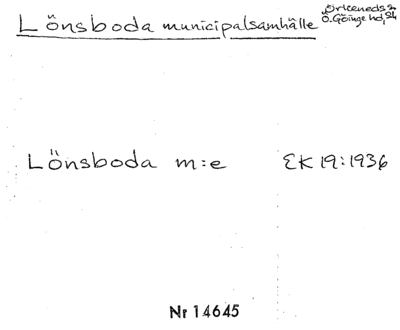 Lönsboda municipalsamhälle
Örkeneds sn
Ö. Göinge hd,
Lönsboda m:e EK 19:1936
Nr 14645